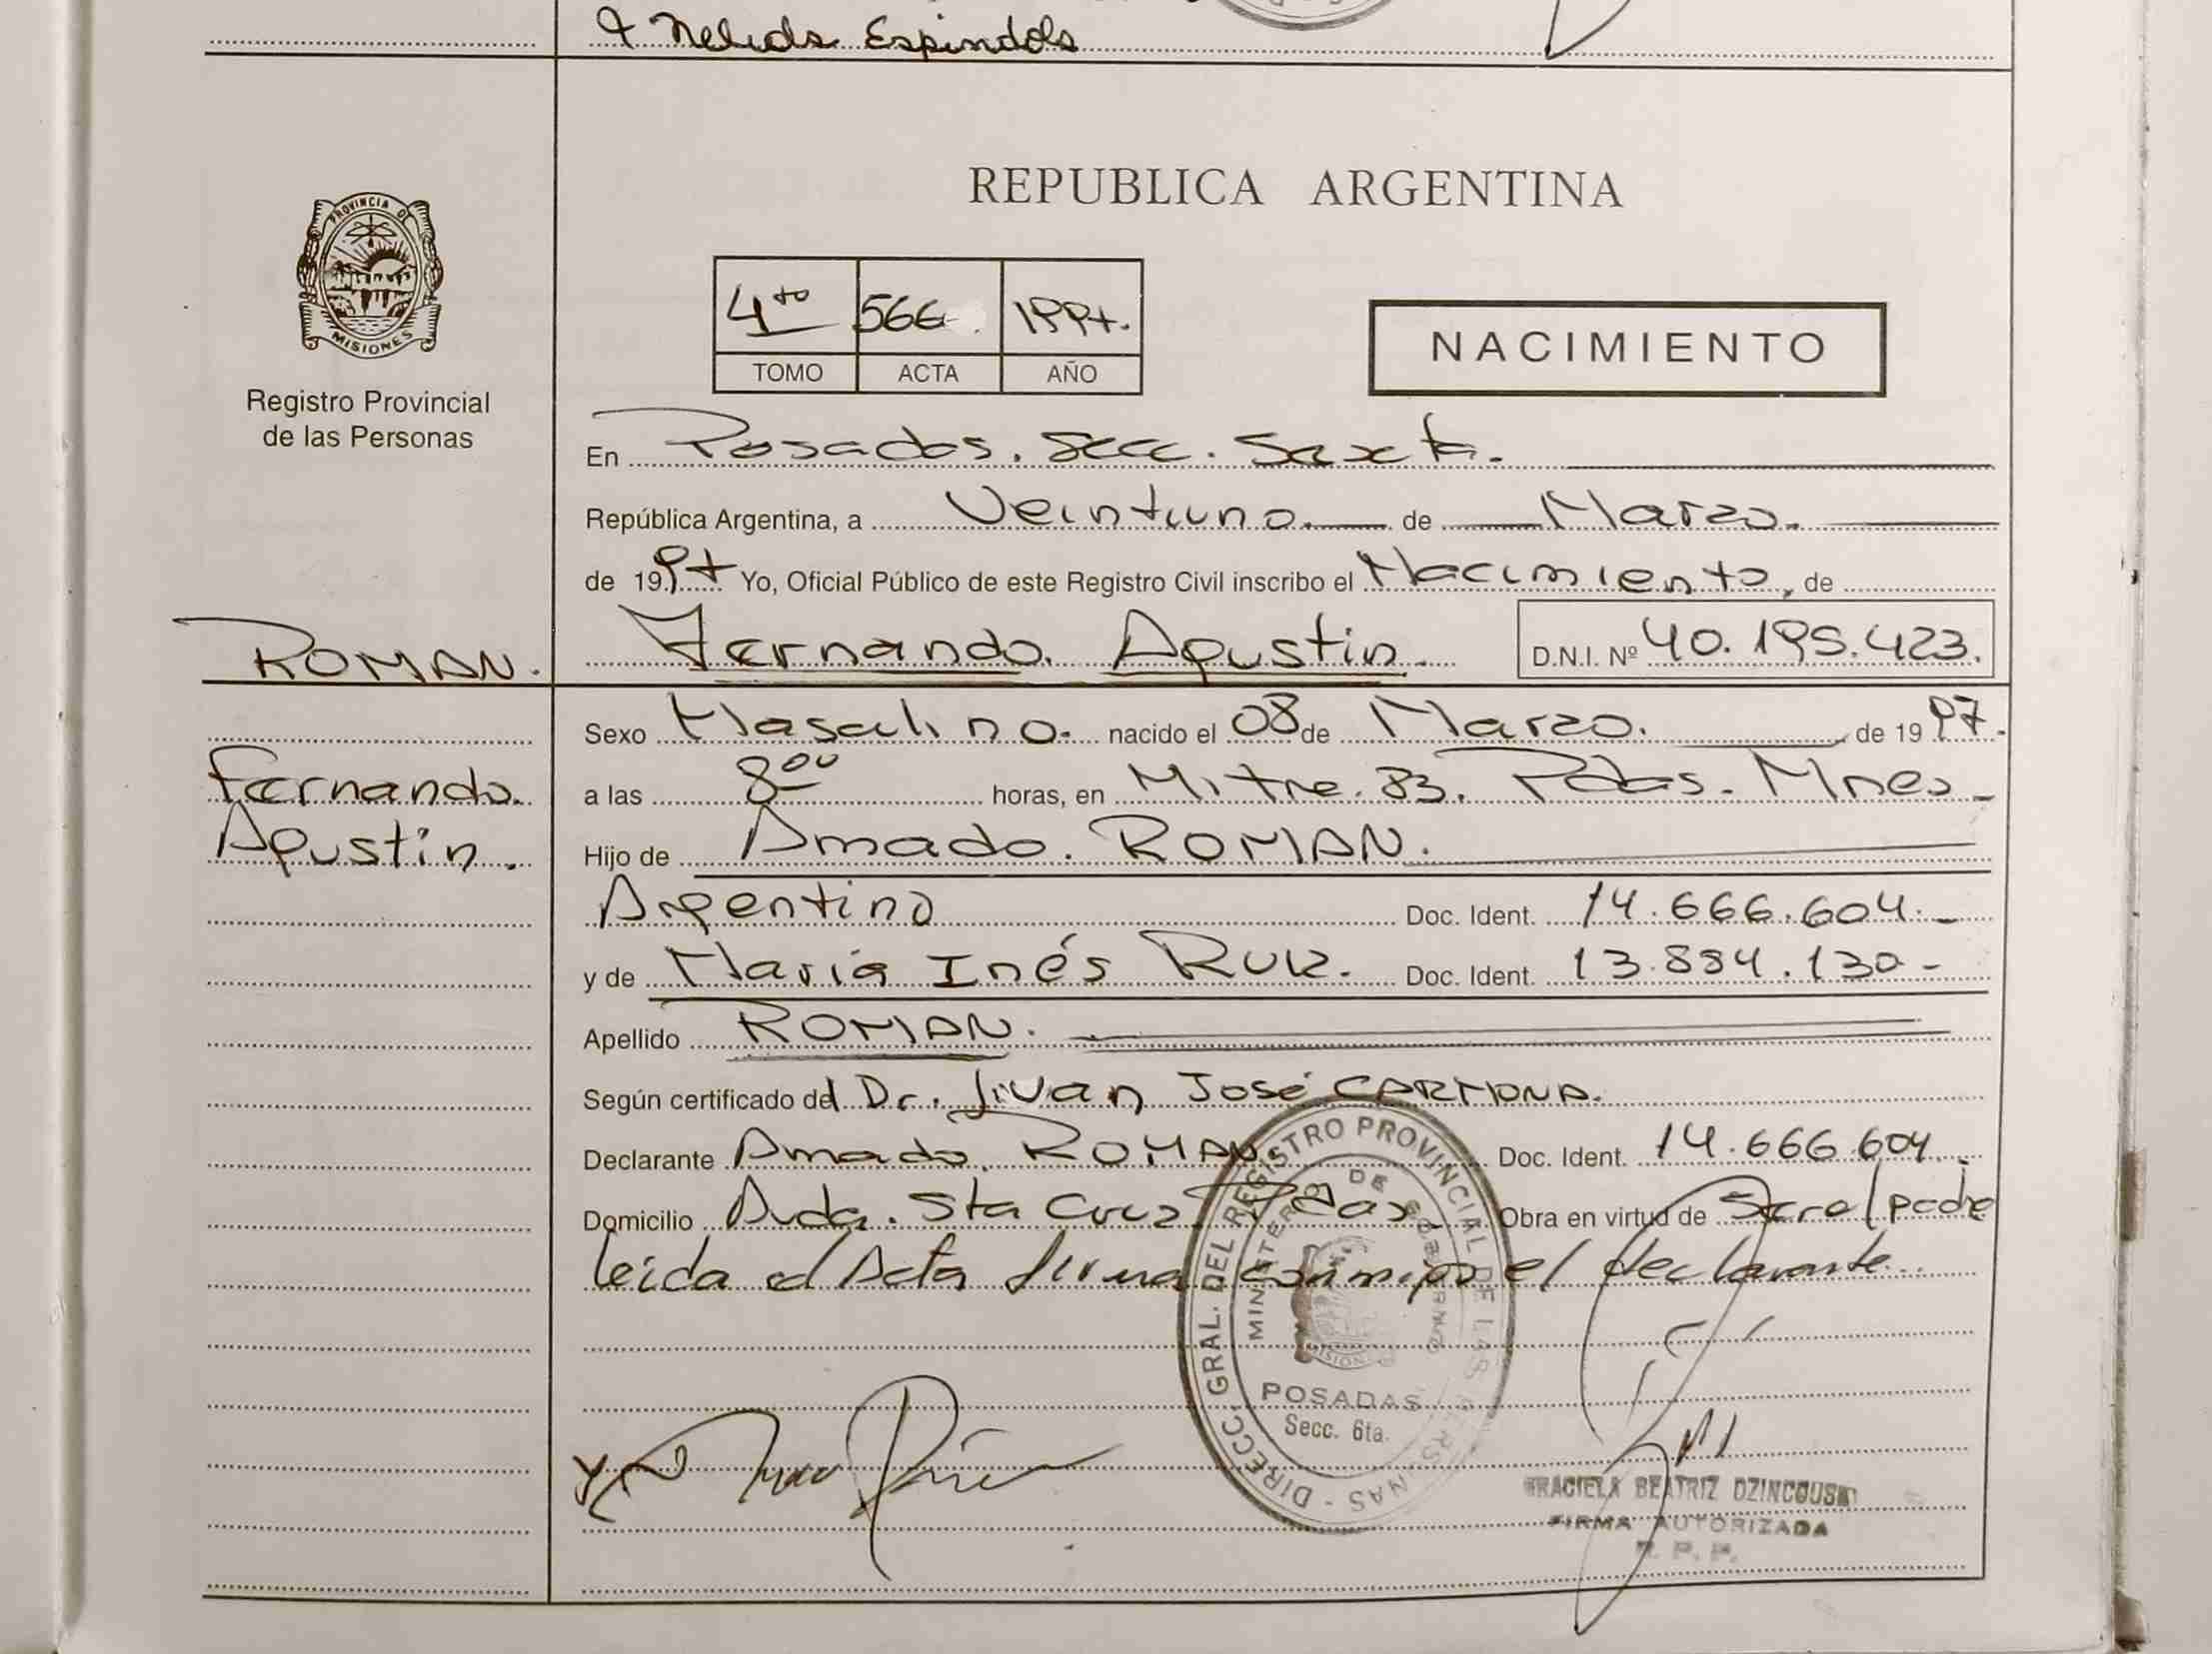 & Nelida Espindola
REPUBLICA ARGENTINA
PROVINCIA D
MISIONES
Registro Provincial
de las Personas
4to 566 1997.
TOMO ACTA AÑO
NACIMIENTO
En Posadas. Secc. Sexta.
República Argentina, a Veintiuno de Marzo.
de 1997 Yo, Oficial Público de este Registro Civil inscribo el Nacimiento, de
ROMAN. Fernando. Agustin. D.N.I. Nº 40.195.423.
Sexo Masculino. nacido el 08 de Marzo. de 1997.
Fernando. a las 8 00 horas, en Mitre. 83. Pdas. Mnes
Agustin. Hijo de Amado. ROMAN.
Argentino Doc. Ident. 14.666.604.-
y de María Inés RUIZ. Doc. Ident. 13.884.130-
Apellido ROMAN.
Según certificado del Dr. Juan José CARMONA.
Declarante Amado. ROMAN. Doc. Ident. 14.666.604.
Domicilio Avda. Sta Cruz Pdas. Obra en virtud de ser el padre
leida el Acta firma conmigo el declarante
DIRECC. GRAL. DEL REGISTRO PROVINCIAL DE LAS PERSONAS
MINISTERIO DE GOBIERNO
MISIONES
POSADAS
Secc. 6ta.
GRACIELA BEATRIZ
FIRMA AUTORIZADA
R. P. P.